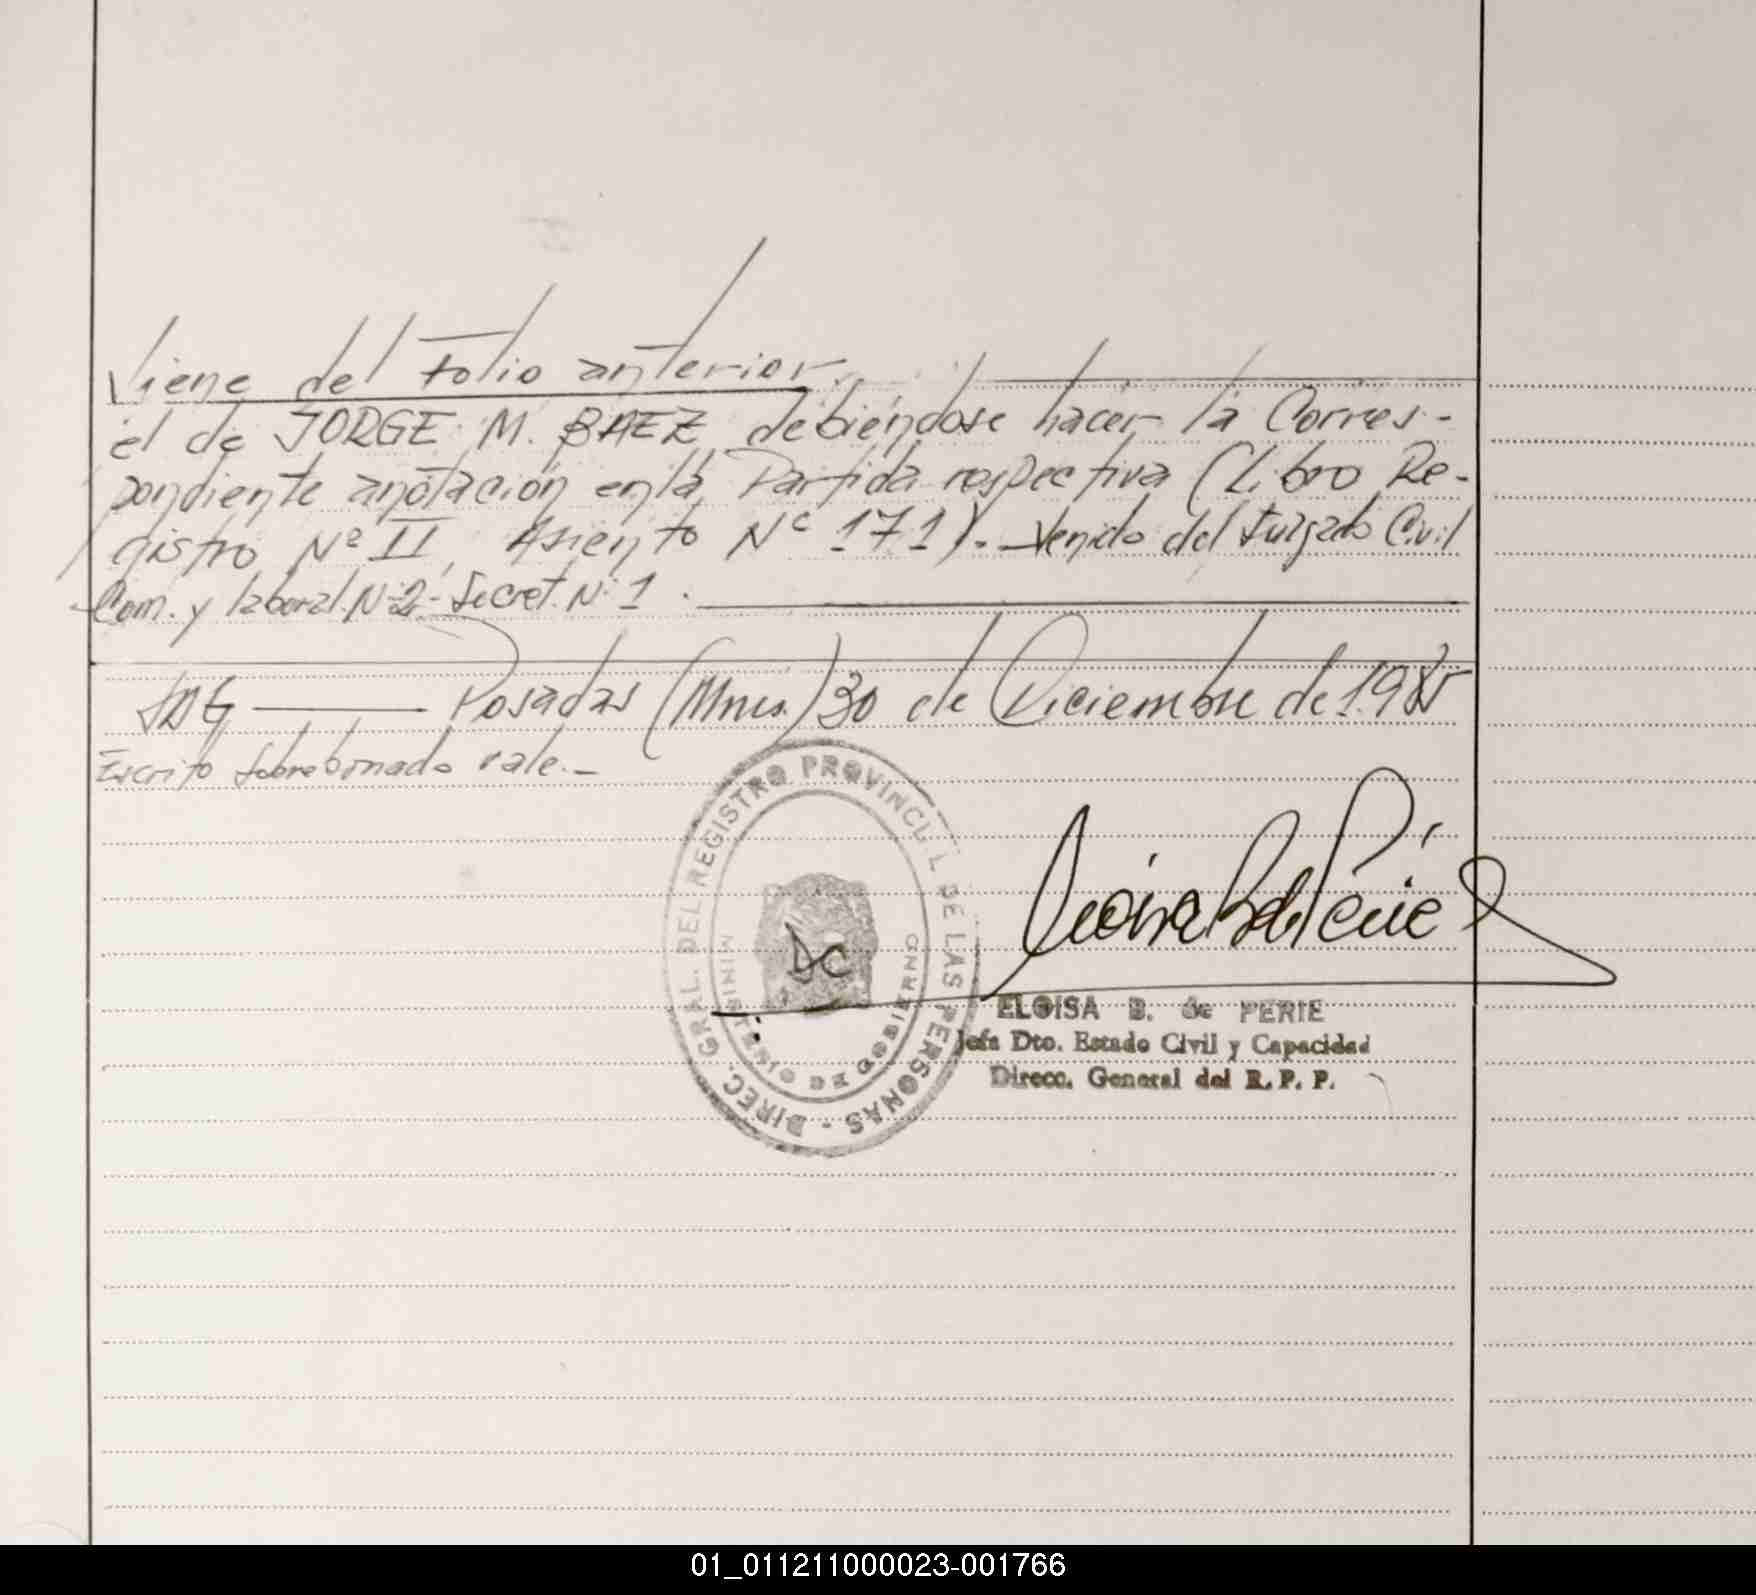 Viene del Folio anterior.
el de JORGE M. BAEZ debiéndose hacer la Corres-
pondiente anotación en la Partida respectiva (Libro Re-
gistro Nº II, Asiento Nº 171). Venido del Juzgado Civil
Com. y laboral. Nº 2 - Secret. Nº 1.
Posadas (Mnes.) 30 de Diciembre de 1.985
Escrito sobreborrado vale.-
DIREC. GRAL. DEL REGISTRO PROVINCIAL DE LAS PERSONAS -
MINISTERIO DE GOBIERNO
ELOISA B. de PERIE
Jefa Dto. Estado Civil y Capacidad
Direcc. General del R. P. P.
01_011211000023-001766